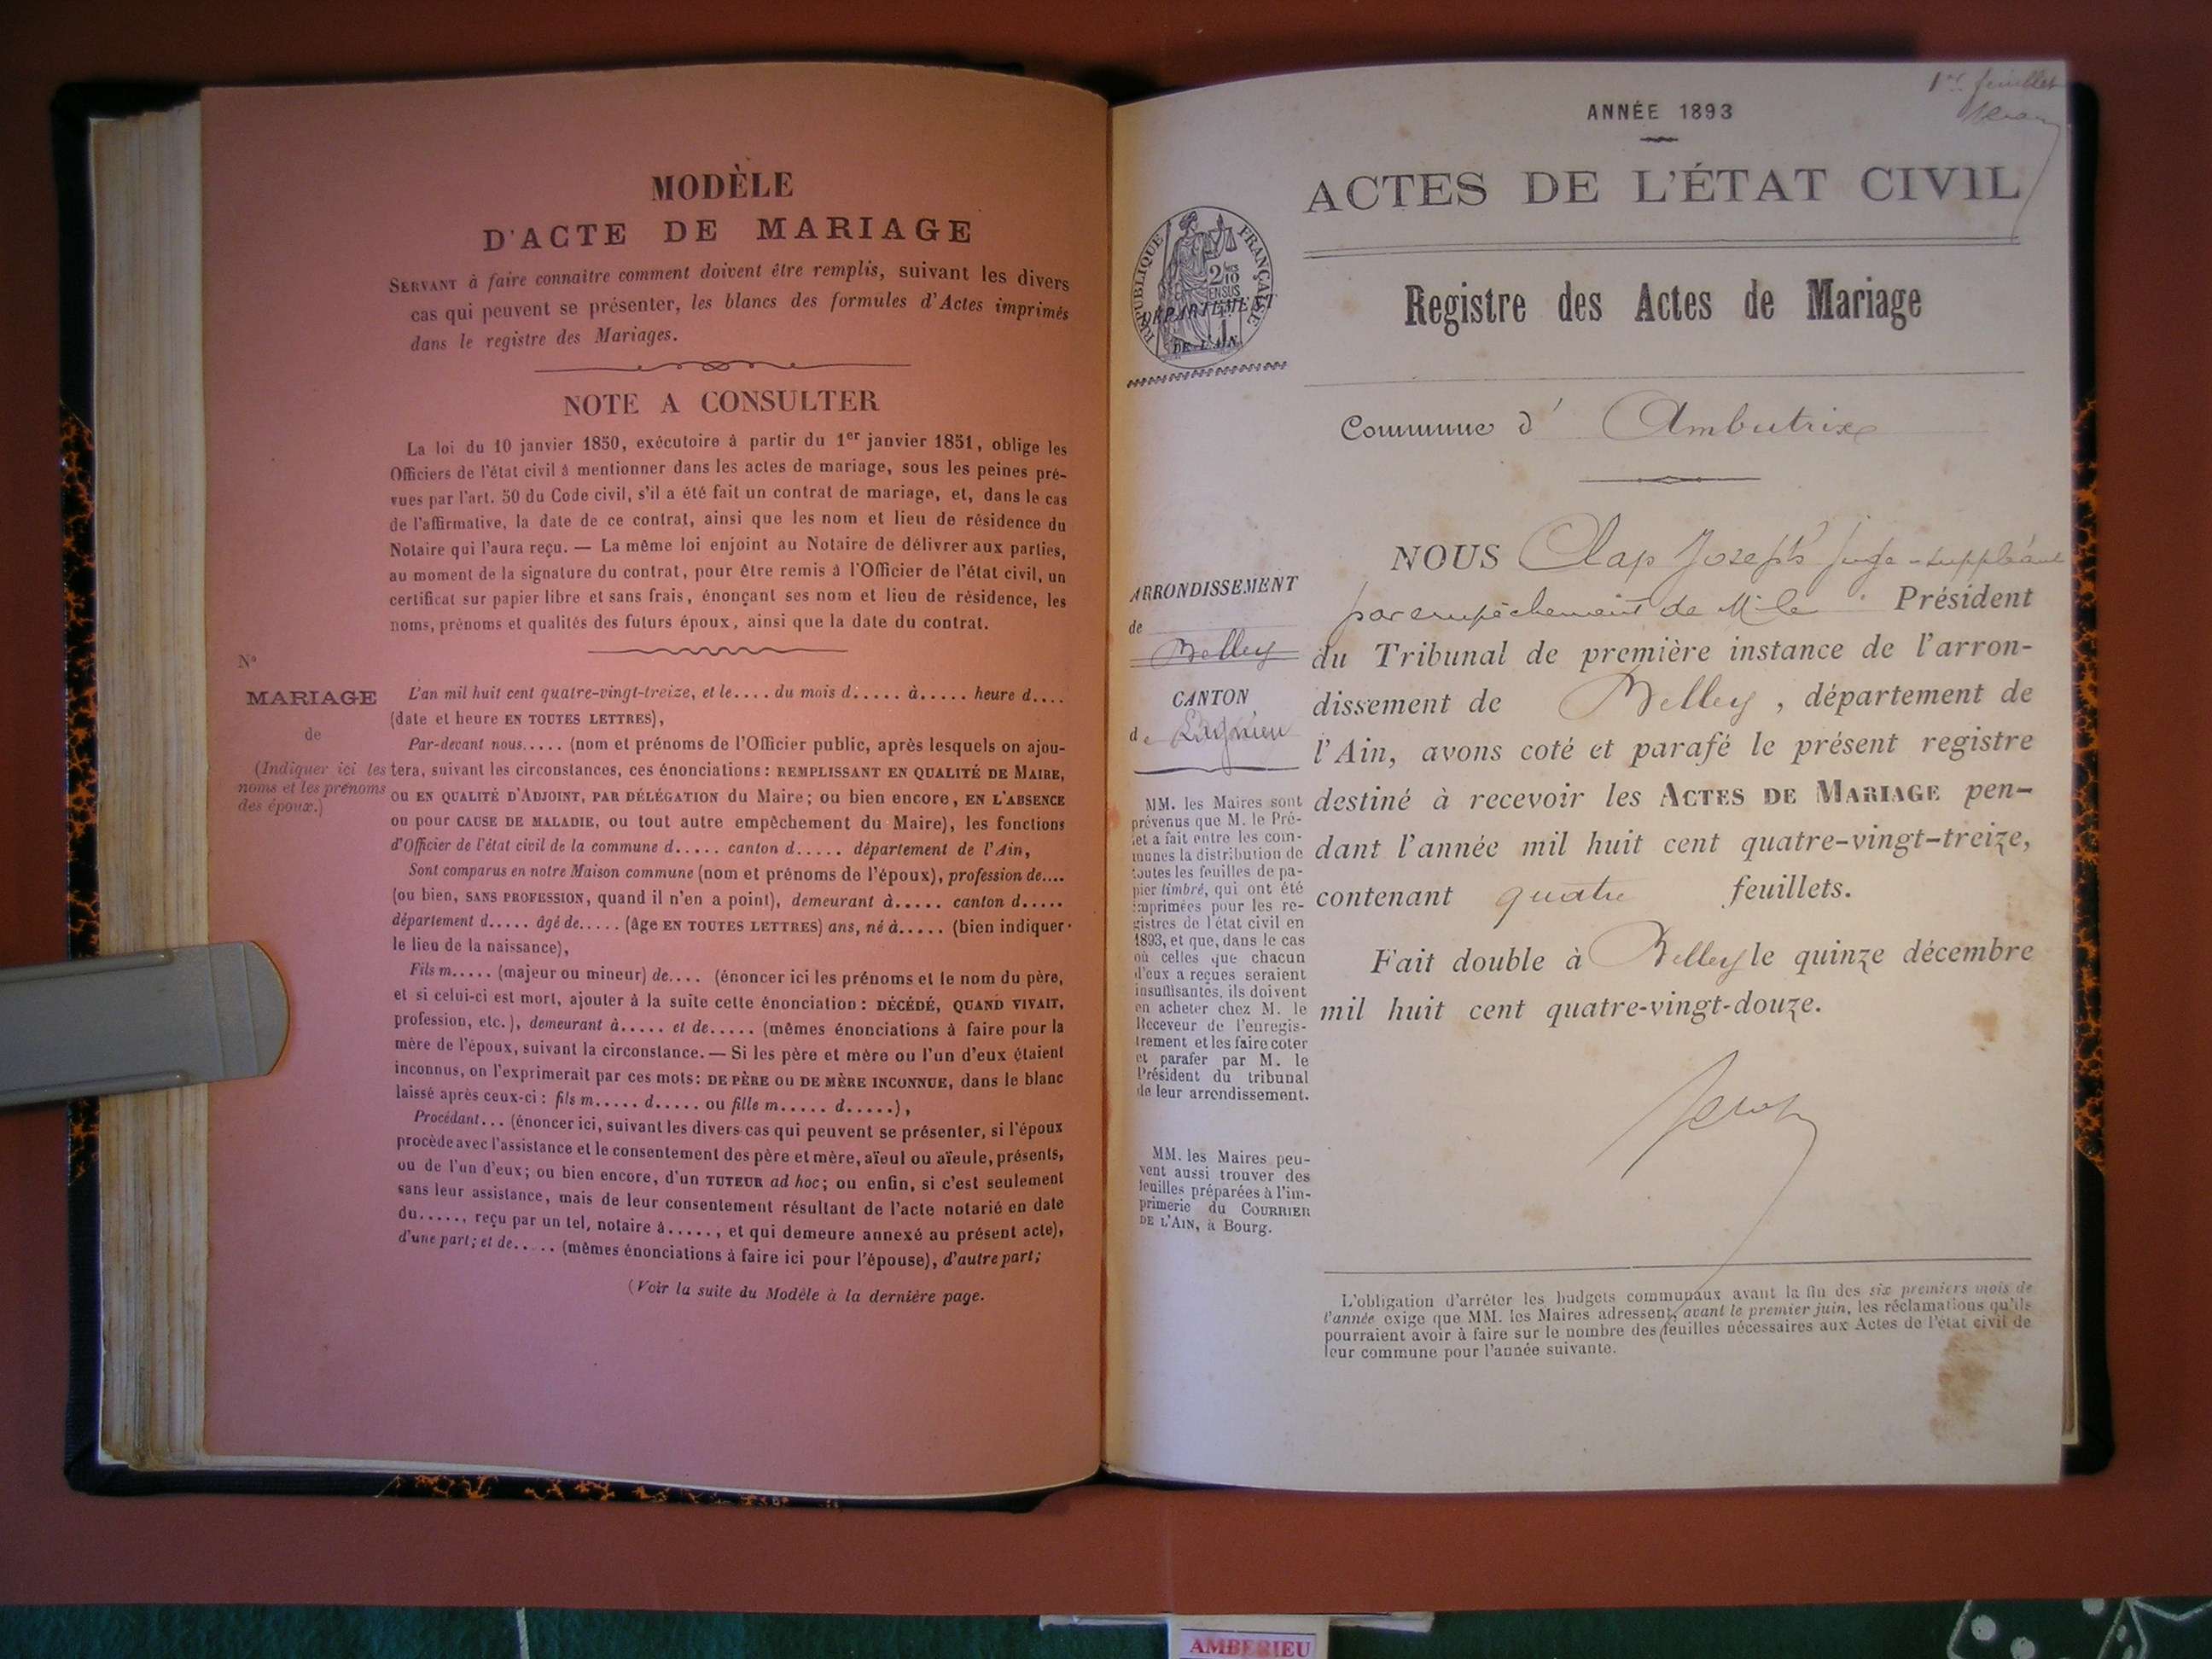 MODÈLE
D'ACTE DE MARIAGE
SERVANT à faire connaître comment doivent être remplis, suivant les divers
cas qui peuvent se présenter, les blancs des formules d'Actes imprimés
dans le registre des Mariages.
NOTE A CONSULTER
La loi du 10 janvier 1850, exécutoire à partir du 1er janvier 1851, oblige les
Officiers de l'état civil à mentionner dans les actes de mariage, sous les peines pré-
vues par l'art. 50 du Code civil, s'il a été fait un contrat de mariage, et, dans le cas
de l'affirmative, la date de ce contrat, ainsi que les nom et lieu de résidence du
Notaire qui l'aura reçu. — La même loi enjoint au Notaire de délivrer aux parties,
au moment de la signature du contrat, pour être remis à l'Officier de l'état civil, un
certificat sur papier libre et sans frais, énonçant ses nom et lieu de résidence, les
noms, prénoms et qualités des futurs époux, ainsi que la date du contrat.
N°
MARIAGE
de
(Indiquer ici les
noms et les prénoms
des époux.)
L'an mil huit cent quatre-vingt-treize, et le.... du mois d..... à..... heure d....
(date et heure EN TOUTES LETTRES),
Par-devant nous..... (nom et prénoms de l'Officier public, après lesquels on ajou-
tera, suivant les circonstances, ces énonciations : REMPLISSANT EN QUALITÉ DE MAIRE,
ou EN QUALITÉ D'ADJOINT, PAR DÉLÉGATION du Maire; ou bien encore, EN L'ABSENCE
ou pour CAUSE DE MALADIE, ou tout autre empêchement du Maire), les fonctions
d'Officier de l'état civil de la commune d..... canton d..... département de l'Ain,
Sont comparus en notre Maison commune (nom et prénoms de l'époux), profession de....
(ou bien, SANS PROFESSION, quand il n'en a point), demeurant à..... canton d.....
département d..... âgé de..... (âge EN TOUTES LETTRES) ans, né à..... (bien indiquer
le lieu de la naissance),
Fils m..... (majeur ou mineur) de.... (énoncer ici les prénoms et le nom du père,
et si celui-ci est mort, ajouter à la suite cette énonciation : DÉCÉDÉ, QUAND VIVAIT,
profession, etc.), demeurant à..... et de..... (mêmes énonciations à faire pour la
mère de l'époux, suivant la circonstance. — Si les père et mère ou l'un d'eux étaient
inconnus, on l'exprimerait par ces mots: DE PÈRE OU DE MÈRE INCONNUE, dans le blanc
laissé après ceux-ci : fils m..... d..... ou fille m..... d.....),
Procédant... (énoncer ici, suivant les divers cas qui peuvent se présenter, si l'époux
procède avec l'assistance et le consentement des père et mère, aïeul ou aïeule, présents,
ou de l'un d'eux; ou bien encore, d'un TUTEUR ad hoc; ou enfin, si c'est seulement
sans leur assistance, mais de leur consentement résultant de l'acte notarié en date
du....., reçu par un tel, notaire à....., et qui demeure annexé au présent acte),
d'une part; et de..... (mêmes énonciations à faire ici pour l'épouse), d'autre part;
(Voir la suite du Modèle à la dernière page.
1er feuillet
ANNÉE 1893
ACTES DE L'ÉTAT CIVIL
RÉPUBLIQUE FRANÇAISE
2/10 EN SUS
DÉPARTEMENT
DE L'AIN
Registre des Actes de Mariage
Commune d' Ambutrix
ARRONDISSEMENT
de
Belley
CANTON
de Lagnieu
MM. les Maires sont
prévenus que M. le Pré-
fet a fait entre les com-
munes la distribution de
toutes les feuilles de pa-
pier timbré, qui ont été
imprimées pour les re-
gistres de l'état civil en
1893, et que, dans le cas
où celles que chacun
d'eux a reçues seraient
insuffisantes, ils doivent
en acheter chez M. le
Receveur de l'enregis-
trement et les faire coter
et parafer par M. le
Président du tribunal
de leur arrondissement.
MM. les Maires peu-
vent aussi trouver des
feuilles préparées à l'im-
primerie du COURRIER
DE L'AIN, à Bourg.
NOUS Clap Joseph juge-suppléant
par empêchement de M. le Président
du Tribunal de première instance de l'arron-
dissement de Belley, département de
l'Ain, avons coté et parafé le présent registre
destiné à recevoir les ACTES DE MARIAGE pen-
dant l'année mil huit cent quatre-vingt-treize,
contenant quatre feuillets.
Fait double à Belley le quinze décembre
mil huit cent quatre-vingt-douze.
L'obligation d'arrêter les budgets communaux avant la fin des six premiers mois de
l'année exige que MM. les Maires adressent, avant le premier juin, les réclamations qu'ils
pourraient avoir à faire sur le nombre des feuilles nécessaires aux Actes de l'état civil de
leur commune pour l'année suivante.
AMBERIEU